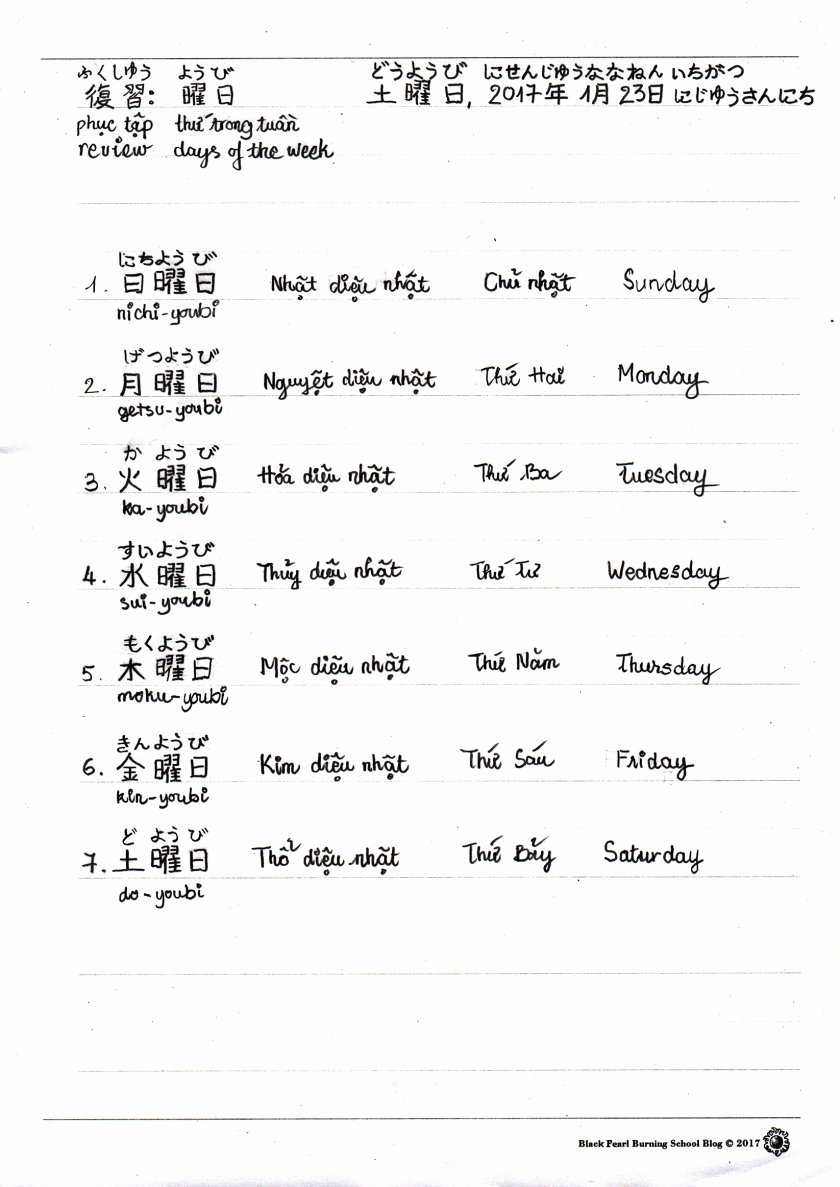 ふくしゆう ようび どうようび にせんじゆうななねん いちがつ
復習: 曜日 土曜日, 2017年 1月 23日 にじゆうさんにち
phục tập thứ trong tuần
review days of the week
にちようび
1. 日曜日 Nhật diệu nhật Chủ nhật Sunday
nichi-youbi
げつようび
2. 月曜日 Nguyệt diệu nhật Thứ Hai Monday
getsu-youbi
か ようび
3. 火曜日 Hỏa diệu nhật Thứ Ba Tuesday
ka-youbi
すいようび
4. 水曜日 Thủy diệu nhật Thứ Tư Wednesday
sui-youbi
もくようび
5. 木曜日 Mộc diệu nhật Thứ Năm Thursday
moku-youbi
きんようび
6. 金曜日 Kim diệu nhật Thứ Sáu Friday
kin-youbi
ど ようび
7. 土曜日 Thổ diệu nhật Thứ Bảy Saturday
do-youbi
Black Pearl Burning School Blog © 2017